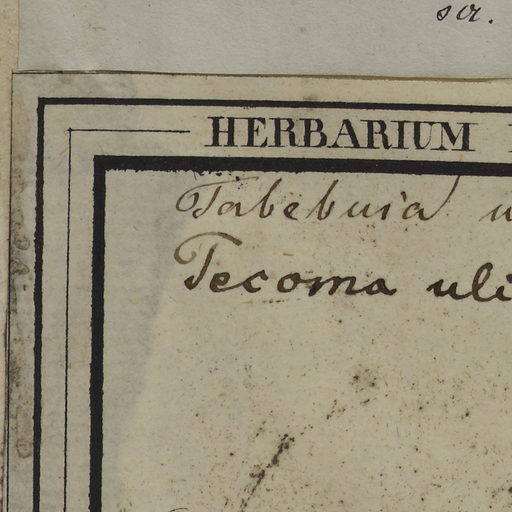 sct.
HERBARIUM
Tabebuia u
Tecoma uli